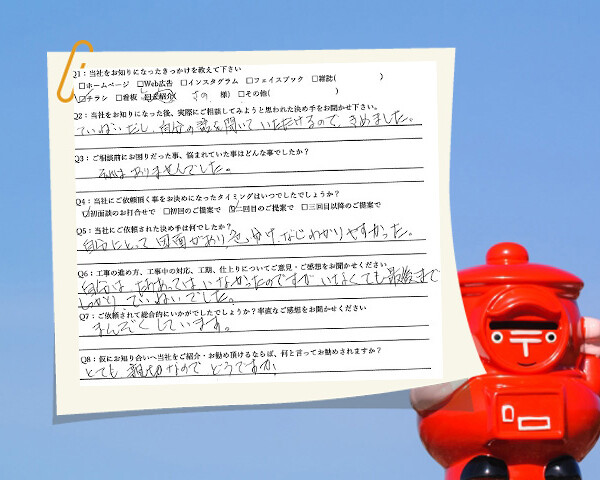 Q1：当社をお知りになったきっかけを教えて下さい
□ホームページ □Web広告 □インスタグラム □フェイスブック □雑誌( )
☑チラシ □看板 ご紹介( 様) □その他( )
Q2：当社をお知りになった後、実際にご相談してみようと思われた決め手をお聞かせ下さい。
ていねいだし、自分の話を聞いていただけるので、きめました。
Q3：ご相談前にお困りだった事、悩まれていた事はどんな事でしたか？
ありませんでした。
Q4：当社にご依頼頂く事をお決めになったタイミングはいつでしたでしょうか？
☑初面談のお打合せで □初回のご提案で ☑二回目のご提案で □三回目以降のご提案で
Q5：当社にご依頼された決め手は何でしたか？
自分にとって図面があり色分け なじわかりやすかった。
Q6：工事の進め方、工事中の対応、工期、仕上りについてご意見・ご感想をお聞かせください
自分は、たちあってはいなかったのですが いなくても最後まで
しっかり、ていねいでした。
Q7：ご依頼されて総合的にいかがでしたでしょうか？率直なご感想をお聞かせください
まんぞくしています。
Q8：仮にお知り合いへ当社をご紹介・お勧め頂けるならば、何と言ってお勧めされますか？
とても親切なのでどうですか。
〒